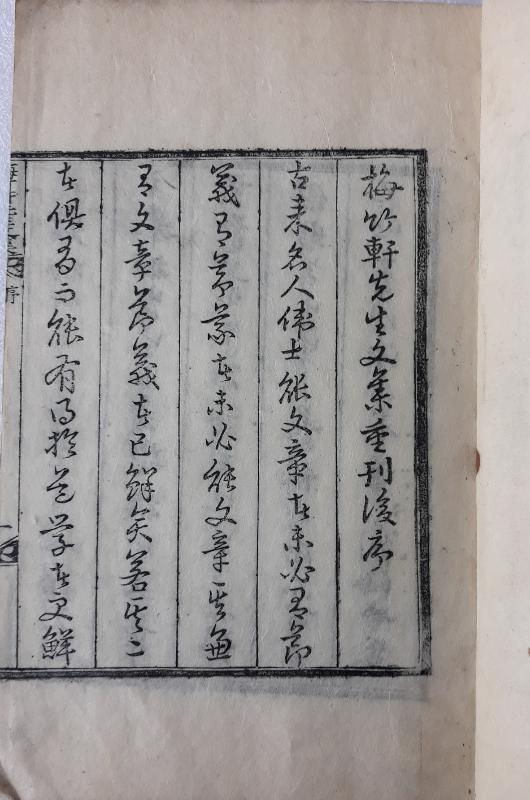 梅竹軒先生文集重刊後序
古来名人偉士能文章者未必有節
義有節義者未必能文章其兼
有文章節義者已鮮矣若其二
者俱有而能有得於道學者更鮮
序